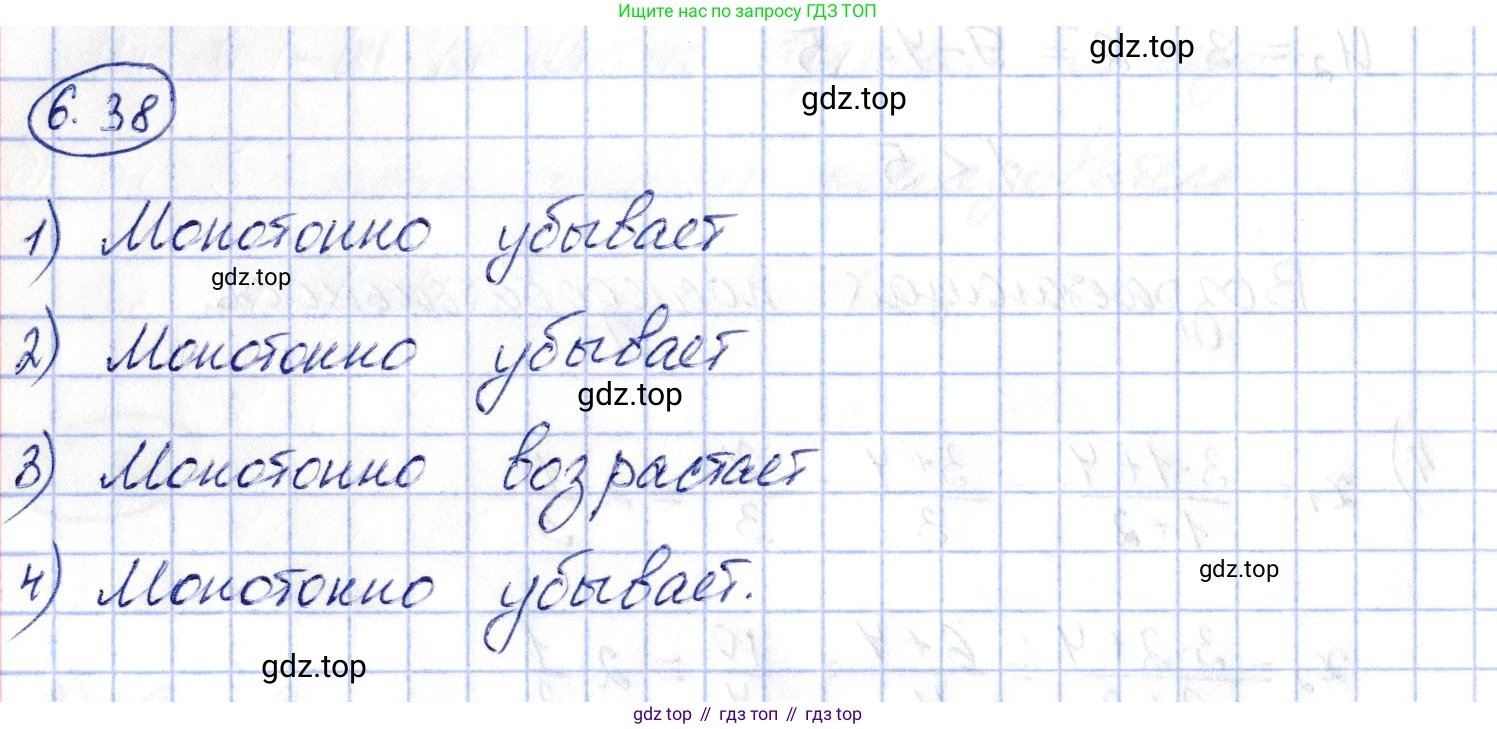 Ищите нас по запросу ГДЗ ТОП
gdz.top
gdz.top
6.38
1) Монотонно убывает
gdz.top
2) Монотонно убывает
gdz.top
3) Монотонно возрастает
4) Монотонно убывает.
gdz.top
gdz.top
gdz top // гдз топ // гдз top